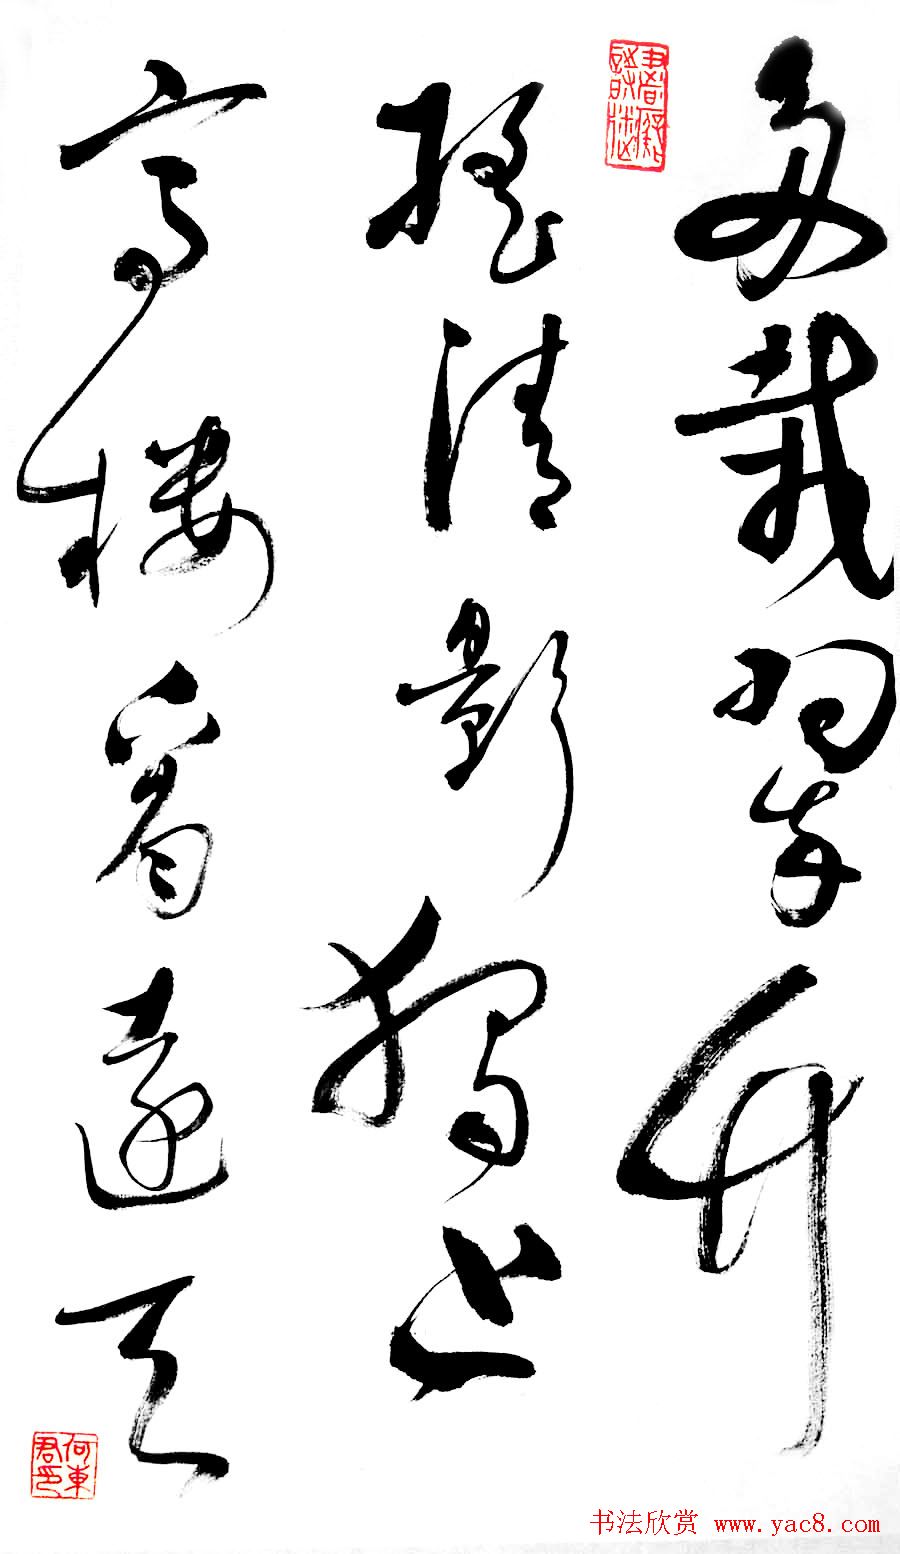 多栽翠竹
搖清影獨上
高樓看遠天
何東君印
书法欣赏 www.yac8.com